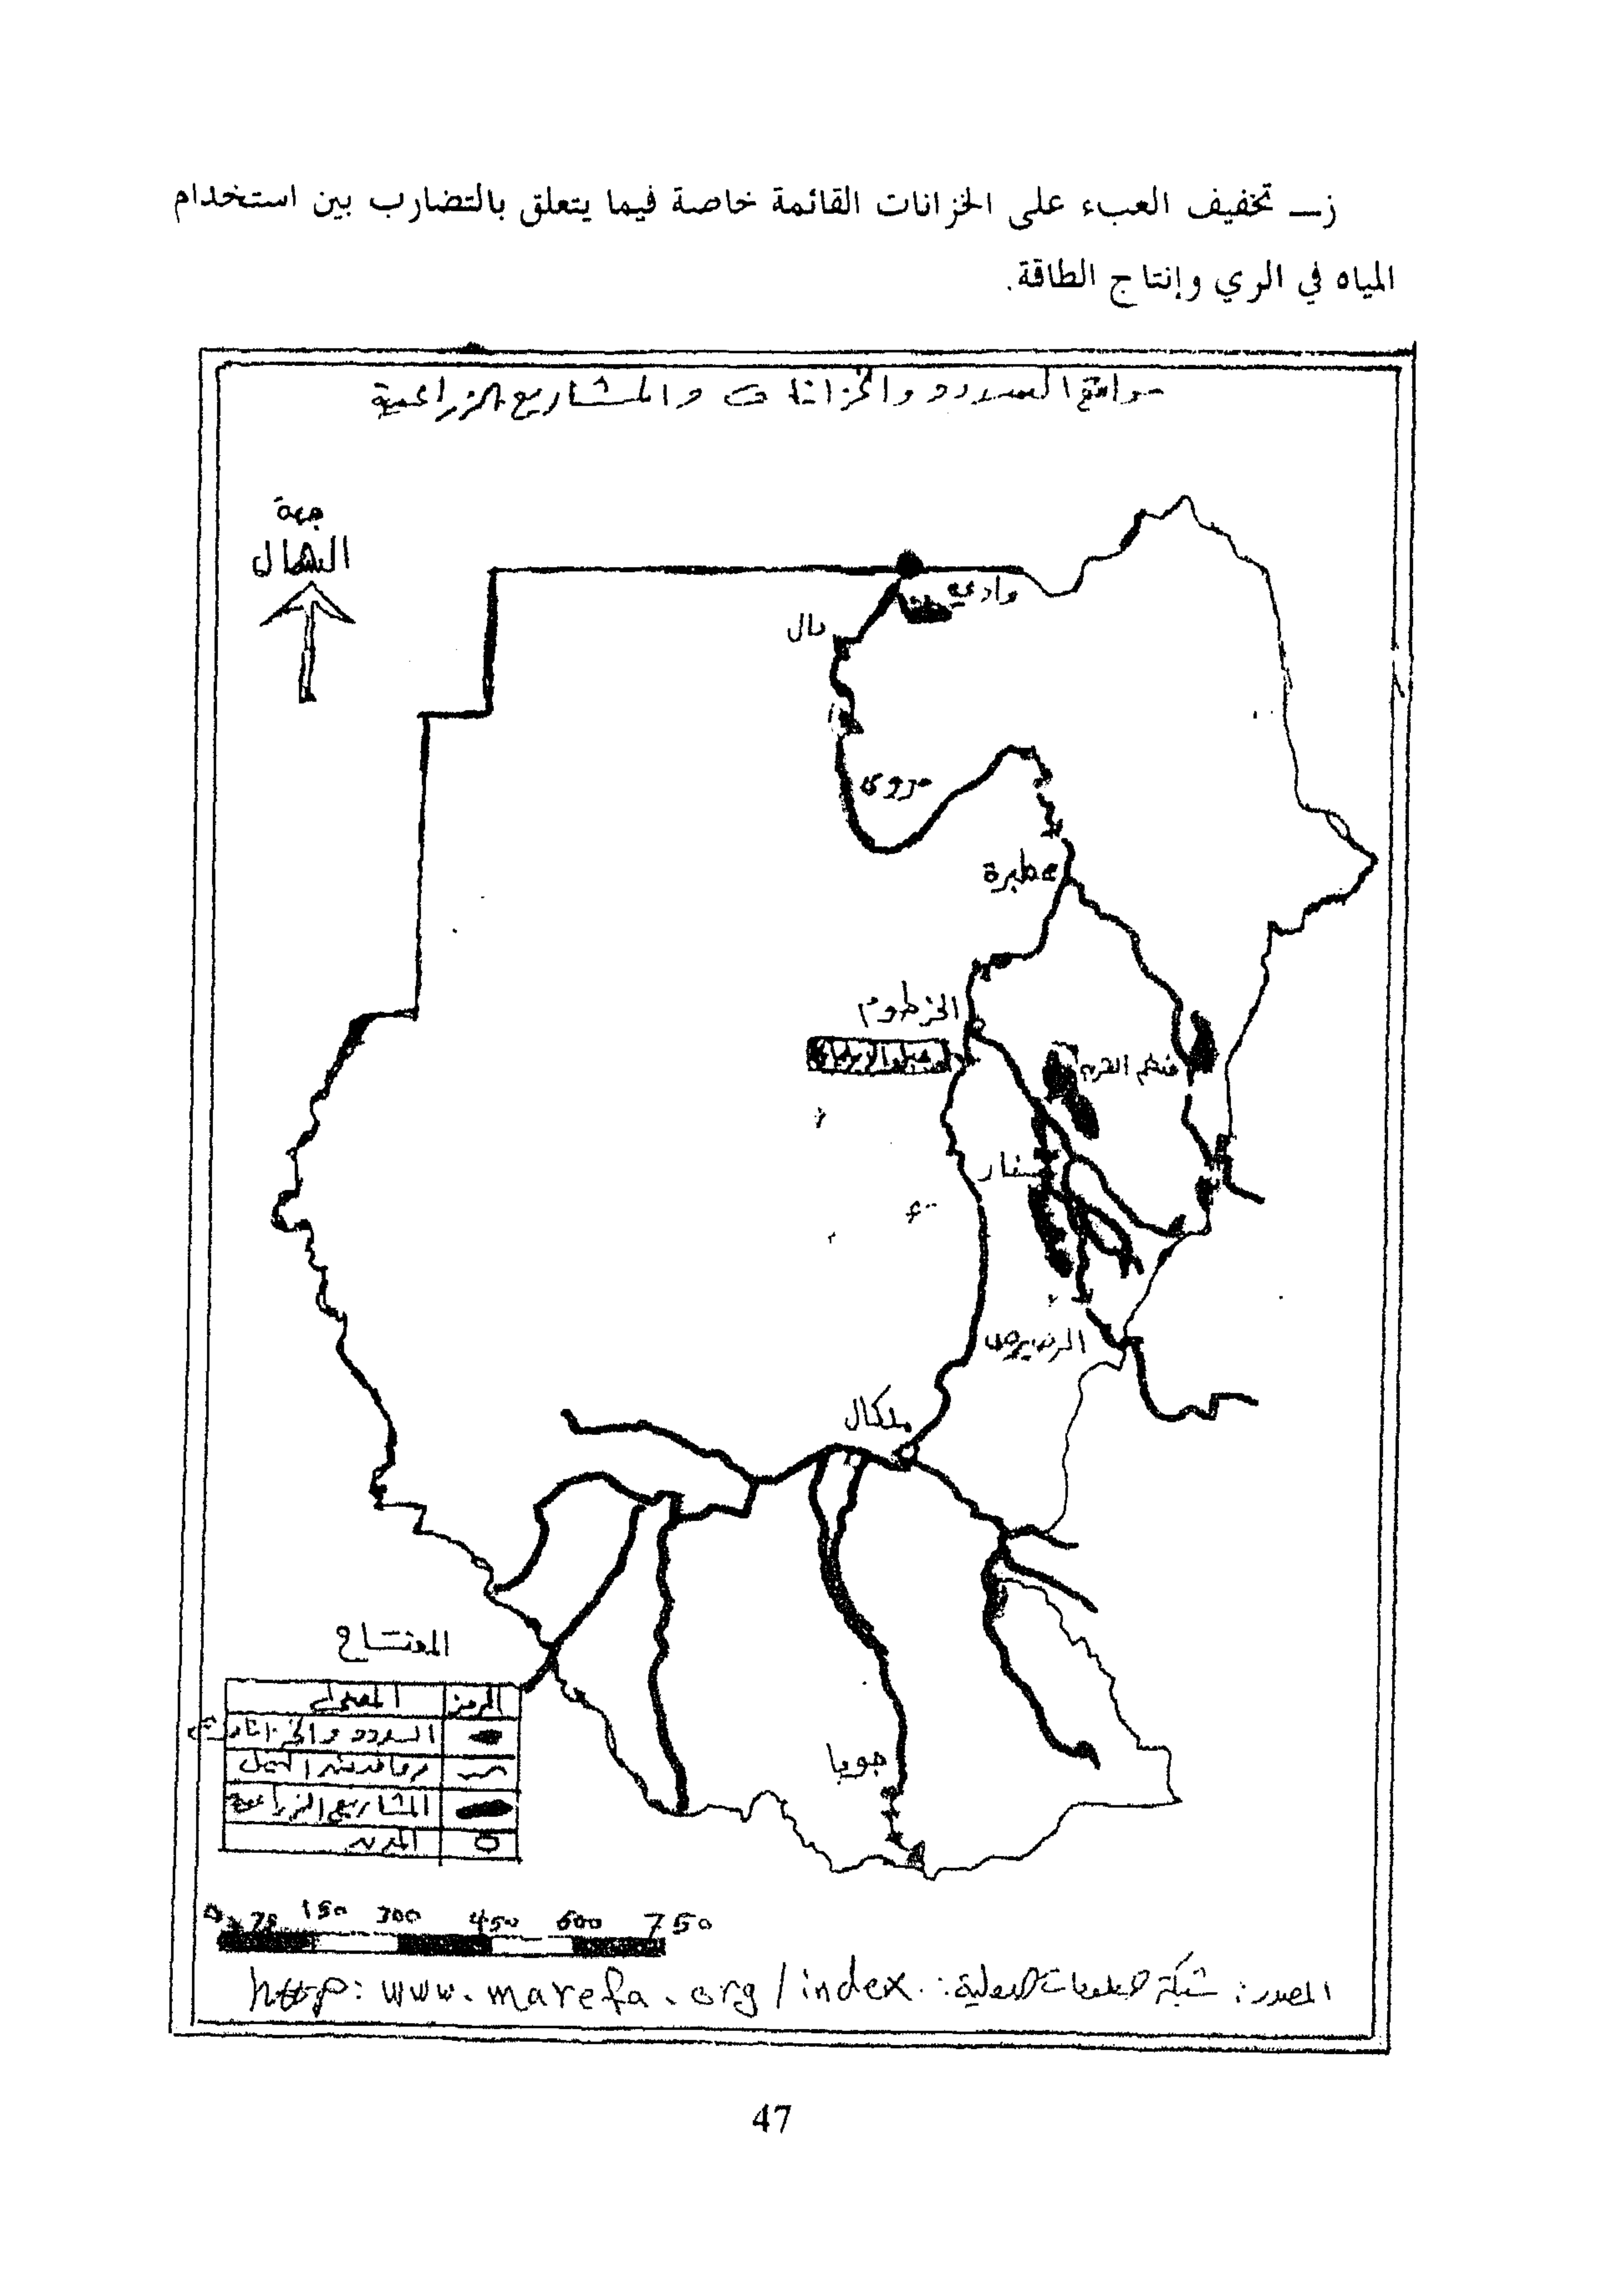 ز ــ تخفيف العبء على الخزانات القائمة خاصة فيما يتعلق بالتضارب بين استخدام
المياه في الري وإنتاج الطاقة.
مواقع السدود والخزانات والمشاريع الزراعية
جهة
الشمال
وادي
دال
مروى
عطبرة
الخرطوم
خشم القربة
سنار
الرصيرص
ملكال
جوبا
المفتاح
الرمز
السدود والخزانات
المشاريع الزراعية
المدن
75 150 300 450 600 750
المصدر: شبكة المعلومات الدولية: http: www.marefa.org/index.
47